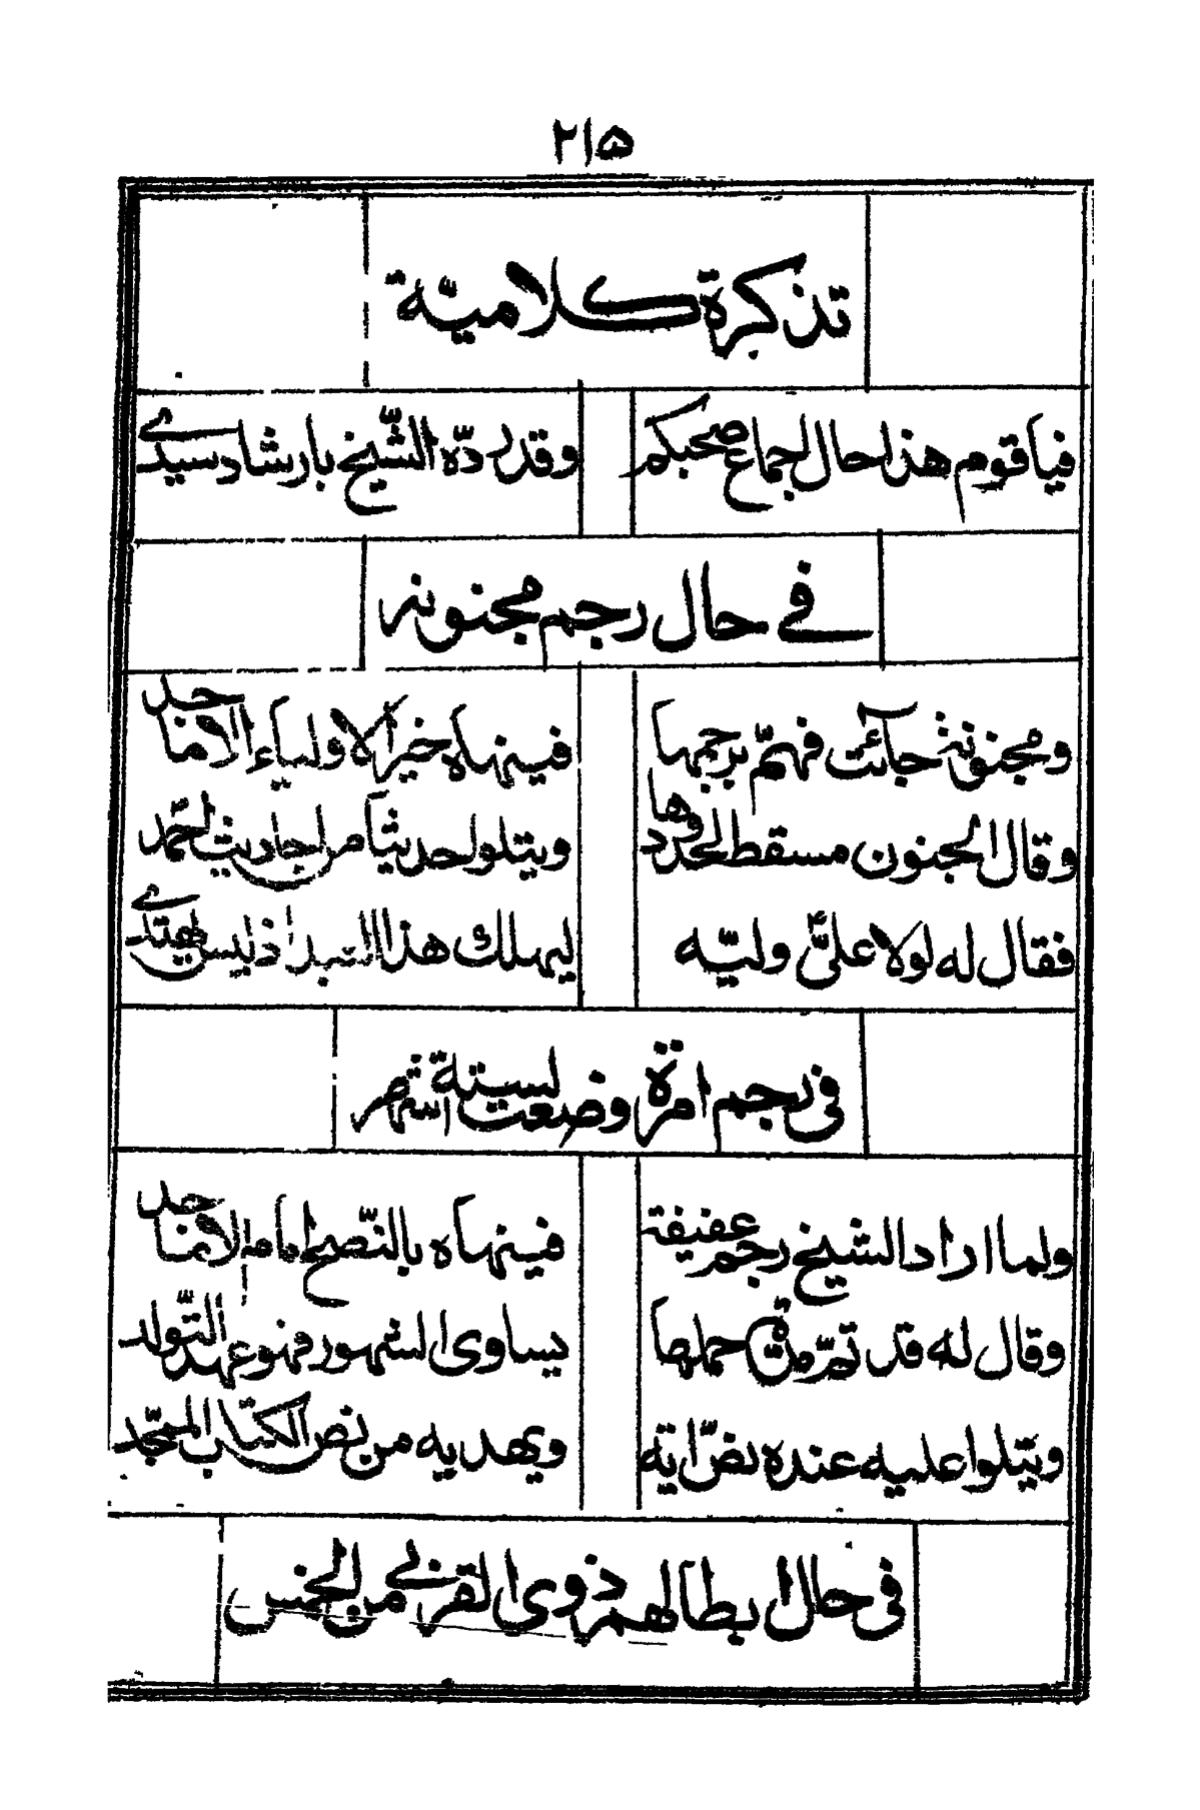 ۲۱۵
تذكرة كلامية
فيا قوم هذا حال اجماع صحبكم وقد ردّه الشّيخ بارشاد سيدي
في حال رجم مجنونه
ومجنونة جائت فهمّ برجمها فينهاه خير الاولياء الاماجد
وقال الجنون مسقط لحدودها ويتلو احديثا من احاديث احمد
فقال له لولا عليّ وليّه ليهلك هذا السيد اذ ليس يهتدي
في رجم امرة وضعت لستة اشهر
ولما اراد الشيخ رجم عفيفة فينهاه بالنّصح امام الاماجد
وقال له قد تمّ مدة حملها يساوى الشهور فهو عهد التّولد
ويتلوا عليه عنده نصّ اية ويهديه من نص الكتاب الممجّد
في حال ابطالهم ذوى القربى من الخمس